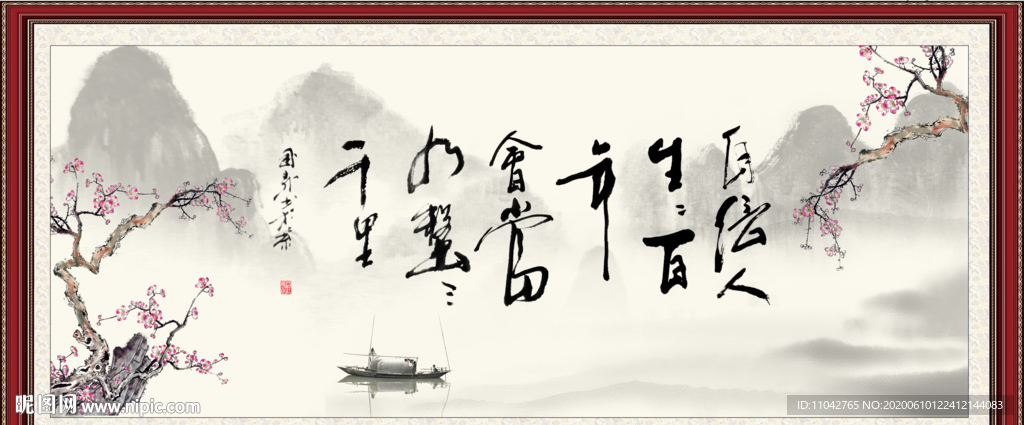 自信人
生二百
年
會當
水擊三
千里
昵图网 www.nipic.com
ID:11042765 NO:20200610122412144083